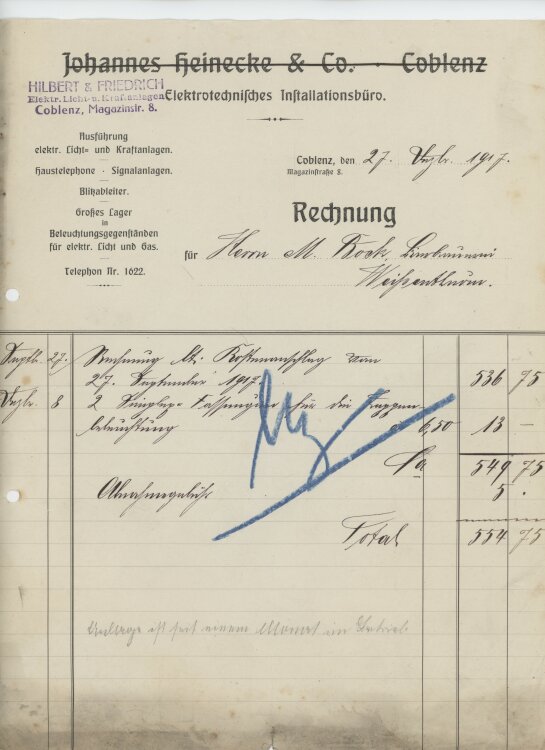 Johannes Heinecke & Co. · Coblenz
HILBERT & FRIEDRICH
Elektr. Licht- u. Kraftanlagen
Coblenz, Magazinstr. 8.
Elektrotechnisches Installationsbüro.
Ausführung
elektr. Licht= und Kraftanlagen.
Haustelephone · Signalanlagen.
Blitzableiter.
Großes Lager
in
Beleuchtungsgegenständen
für elektr. Licht und Gas.
Telephon Nr. 1622.
Coblenz, den 27. Dezbr. 1917.
Magazinstraße 8.
Rechnung
für Herrn M. Kock, Bierbrauerei
Weißenthurm.
Septb. 27. Rechnung lt. Kostenanschlag vom
27. September 1917. 536 75
Dezbr. 8 2 Fassungen für die Treppen
beleuchtung a 6,50 13 –
Sa 549 75
Abnahmegebühr 5 .
Total 554 75
Anlage ist seit einem Monat im Betrieb.